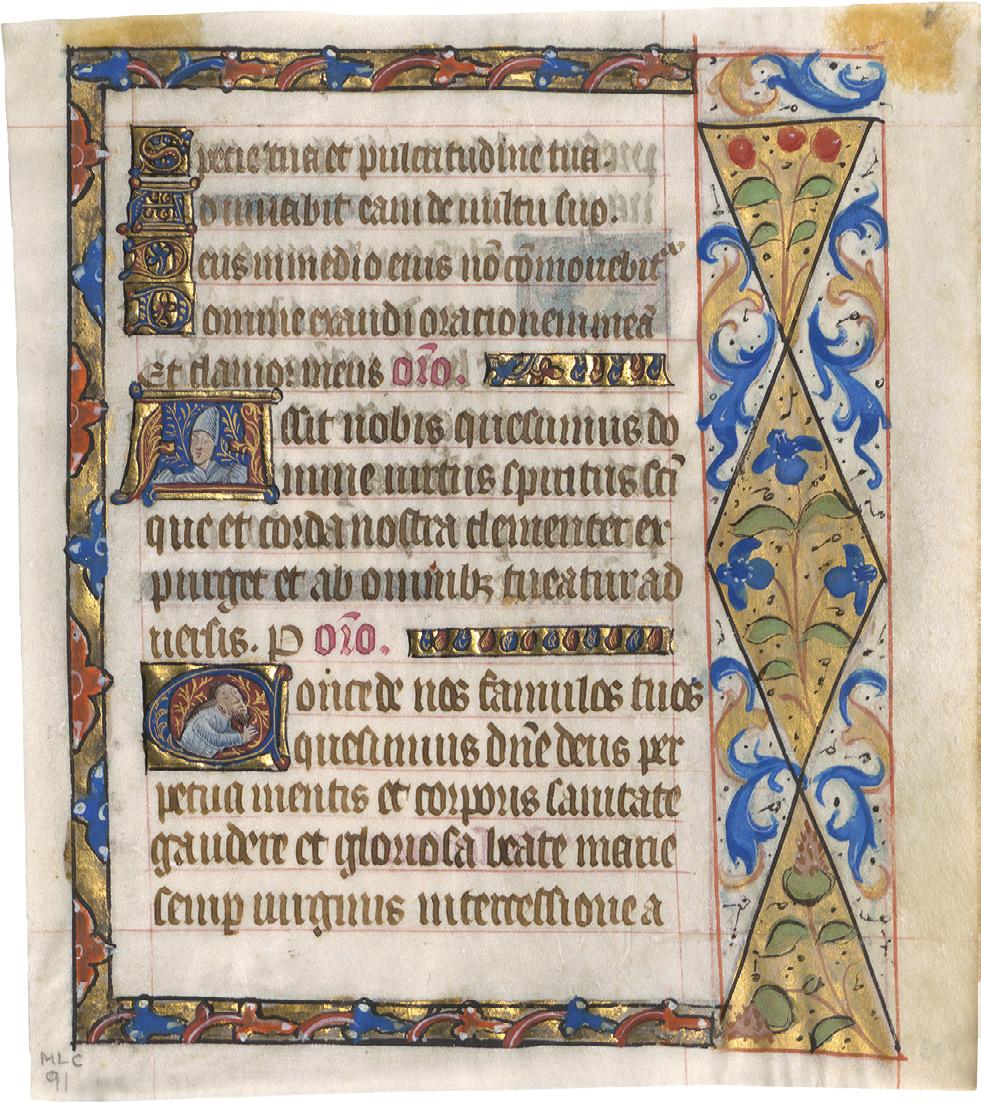 Specie tua et pulcritudine tua.
Adiuvabit eam de⁹ vultu suo.
Deus in medio eius nō cōmovebit᷑
Domine exaudi oracionem meā
Et clamor meus orō.
Assit nobis quesumus do
mine virtus spiritus scī
que et corda nostra clementer ex
purget et ab omnibꝫ tueatur ad
versis. P orō.
Concede nos famulos tuos
quesumus dn̄e deus per
petua mentis et corporis sanitate
gaudere et gloriosa beate marie
semꝑ virginis intercessione a
MLC
91